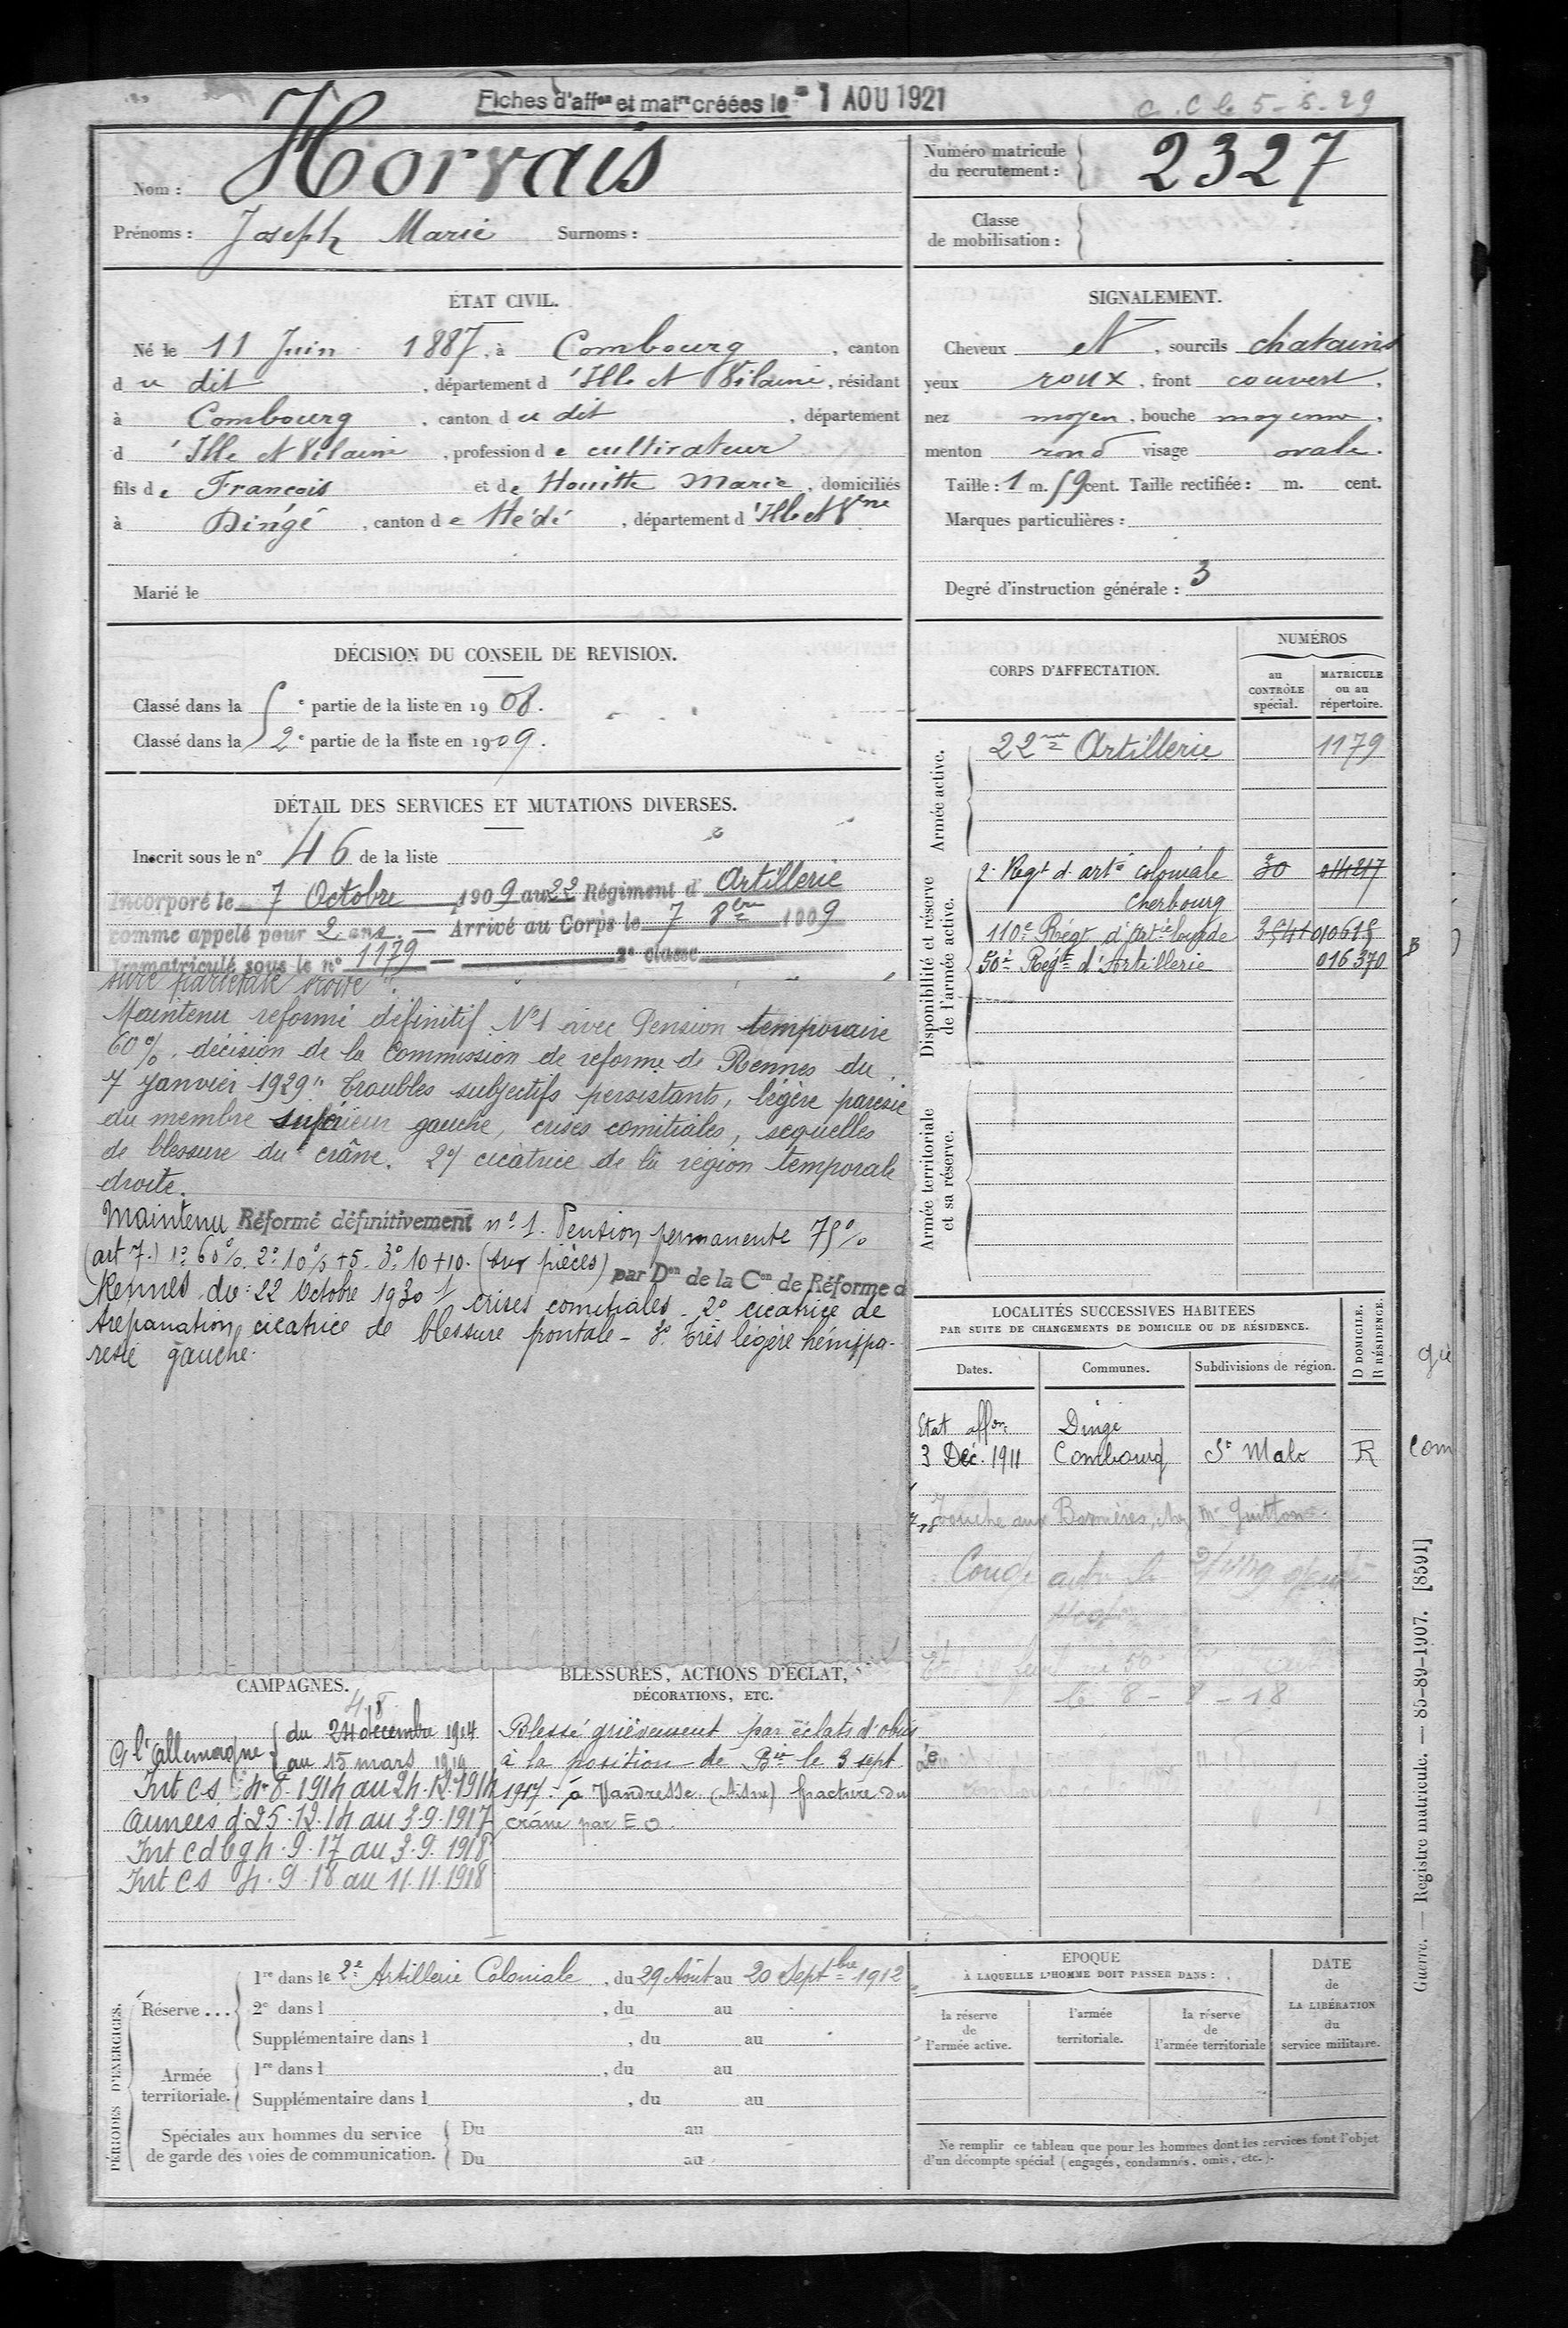 Fiches d'affon et matre créées le 1 AOU 1921
C.C le 5-6-29
Nom : Horvais
Prénoms : Joseph Marie Surnoms :
Numéro matricule du recrutement : 2327
Classe de mobilisation :
ÉTAT CIVIL.
Né le 11 Juin 1887, à Combourg, canton
du dit, département d'Ille et Vilaine, résidant
à Combourg, canton du dit, département
d'Ille et Vilaine, profession de cultivateur
fils de François et de Houitte Marie, domiciliés
à Dingé, canton de Hédé, département d'Ille et Vne
Marié le
SIGNALEMENT.
Cheveux et, sourcils chatains
yeux roux, front couvert,
nez moyen, bouche moyenne,
menton rond visage ovale.
Taille : 1 m. 59 cent. Taille rectifiée : m. cent.
Marques particulières :
Degré d'instruction générale : 3
DÉCISION DU CONSEIL DE REVISION.
Classé dans la e partie de la liste en 1908.
Classé dans la 2e partie de la liste en 1909.
DÉTAIL DES SERVICES ET MUTATIONS DIVERSES.
Inscrit sous le n° 46 de la liste
Incorporé le 7 Octobre 1909 au 22 Régiment d'Artillerie
comme appelé pour 2 ans. — Arrivé au Corps le 7 8bre 1909
Immatriculé sous le n° 1179 — 2e classe
Maintenu réformé définitif N°1 avec Pension temporaire
60%. décision de la Commission de réforme de Rennes du
7 Janvier 1929 "Troubles subjectifs persistants, légère parésie
du membre supérieur gauche, crises comitiales, séquelles
de blessure du crâne. 2°/ cicatrice de la région temporale
droite.
Maintenu Réformé définitivement n° 1. Pension permanente 75%
(art 7.) 1° 60%. 2° 10% +5. 3° 10+10. (sur pièces) par Don de la Con de Réforme d
Rennes du 22 Octobre 1930 1° crises comitiales - 2° cicatrice de
trépanation, cicatrice de blessure frontale - 3° Très légère hémipa-
résie gauche.
CORPS D'AFFECTATION.
NUMÉROS
au CONTRÔLE spécial.
MATRICULE ou au répertoire.
Armée active.
22me Artillerie 1179
Disponibilité et réserve de l'armée active.
2e Regt d'artie coloniale 30 014217
Cherbourg
110e Régt d'Artie lourde 3541 010615
50e Regt d'Artillerie 016370
B
Armée territoriale et sa réserve.
LOCALITÉS SUCCESSIVES HABITÉES
PAR SUITE DE CHANGEMENTS DE DOMICILE OU DE RÉSIDENCE.
Dates. Communes. Subdivisions de région. D DOMICILE. R RÉSIDENCE.
Etat affon Dingé
3 Déc. 1911 Combourg St Malo R
Mr Guitton
le 8 - 8 - 18
CAMPAGNES.
4 8
C l'Allemagne du 24 décembre 1914
au 15 mars 1919
Int C.S. 4.8.1914 au 24.12.1914
Armées d. 25.12.14 au 3.9.1917
Int cdbg 4.9.17 au 3.9.1918
Int C.S 4.9.18 au 11.11.1918
BLESSURES, ACTIONS D'ÉCLAT,
DÉCORATIONS, ETC.
Blessé grièvement par éclats d'obus
à la position de Bie le 3 sept
1917 - à Vandresse (Aisne) fracture du
crâne par E O.
PÉRIODES D'EXERCICES.
Réserve... 1re dans le 2e Artillerie Coloniale, du 29 Août au 20 Septbre 1912
2e dans l , du au
Supplémentaire dans l , du au
Armée territoriale. 1re dans l , du au
Supplémentaire dans l , du au
Spéciales aux hommes du service de garde des voies de communication. Du au
Du au
ÉPOQUE
À LAQUELLE L'HOMME DOIT PASSER DANS :
la réserve de l'armée active.
l'armée territoriale.
la réserve de l'armée territoriale
DATE de LA LIBÉRATION du service militaire.
Ne remplir ce tableau que pour les hommes dont les services font l'objet
d'un décompte spécial (engagés, condamnés, omis, etc.).
Guerre. — Registre matricule. — 85-89-1907. [8591]